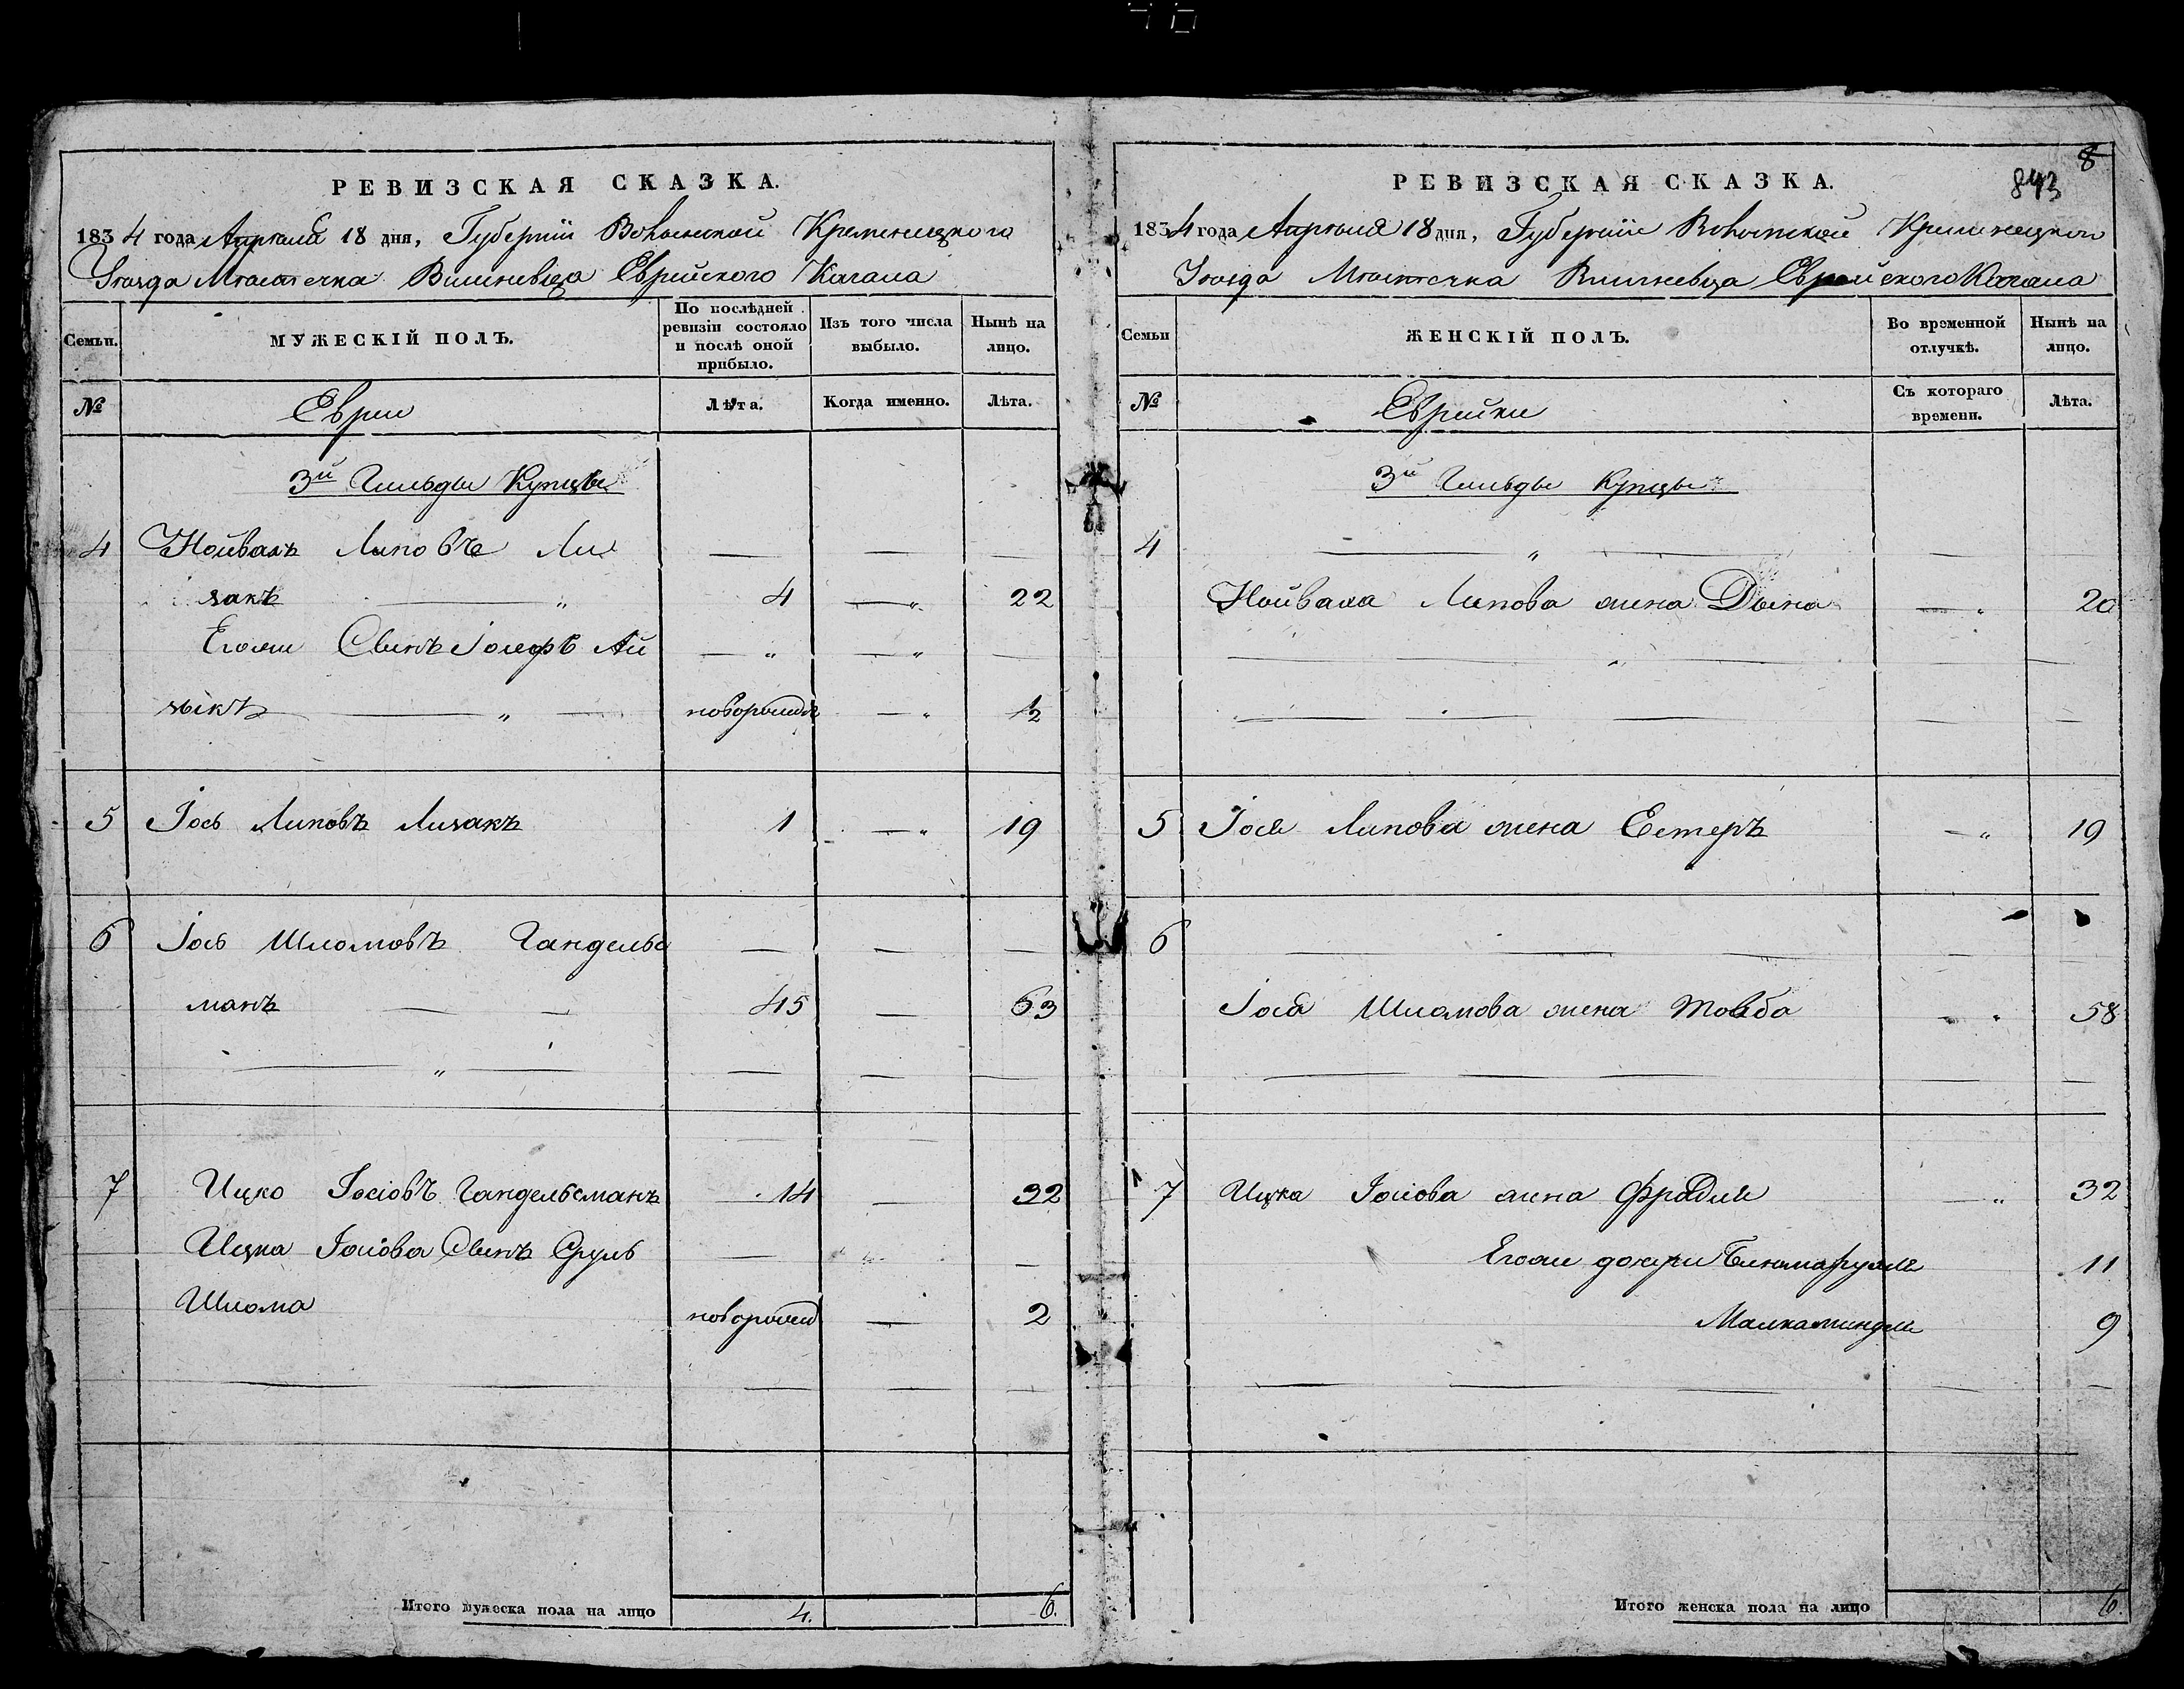 РЕВИЗСКАЯ СКАЗКА.
1834 года Апреля 18 дня, Губерніи Волынской Кременецкого
Уѣзда Мѣстечка Вишневца Еврейского Кагала
Семьи.
МУЖЕСКІЙ ПОЛЪ.
По послѣдней ревизіи состояло и послѣ оной прибыло.
Изъ того числа выбыло.
Нынѣ на лицо.
№
Евреи
Лѣта.
Когда именно.
Лѣта.
3й Гильды Купцы
4 Нойвахъ Липовъ Ли
закъ 4 22
Егоже Сынъ Іосифъ Ай
зыкъ новорожд ½
5 Іось Липовъ Лизакъ 1 19
6 Іось Шломовъ Гандельс
манъ 45 63
7 Ицко Іосіовъ Гандельсманъ 14 32
Ицка Іосіова Сынъ Сруль
Шлома новорожд 2
Итого мужеска пола на лицо 4. 6.
РЕВИЗСКАЯ СКАЗКА.
8
843
1834 года Апреля 18 дня, Губерніи Волынской Кременецкого
Уѣзда Мѣстечка Вишневца Еврейского Кагала
Семьи
ЖЕНСКІЙ ПОЛЪ.
Во временной отлучкѣ.
Нынѣ на лицо.
№
Еврейки
Съ котораго времени.
Лѣта.
3й Гильды Купцы
4
Нойваха Липова жена Дына 20
5 Іося Липова жена Естеръ 19
6
Іося Шломова жена Товба 58
7 Ицка Іосіова жена Фрадля 32
Егоже дочери 11
Малкаминдля 9
Итого женска пола на лицо 6.